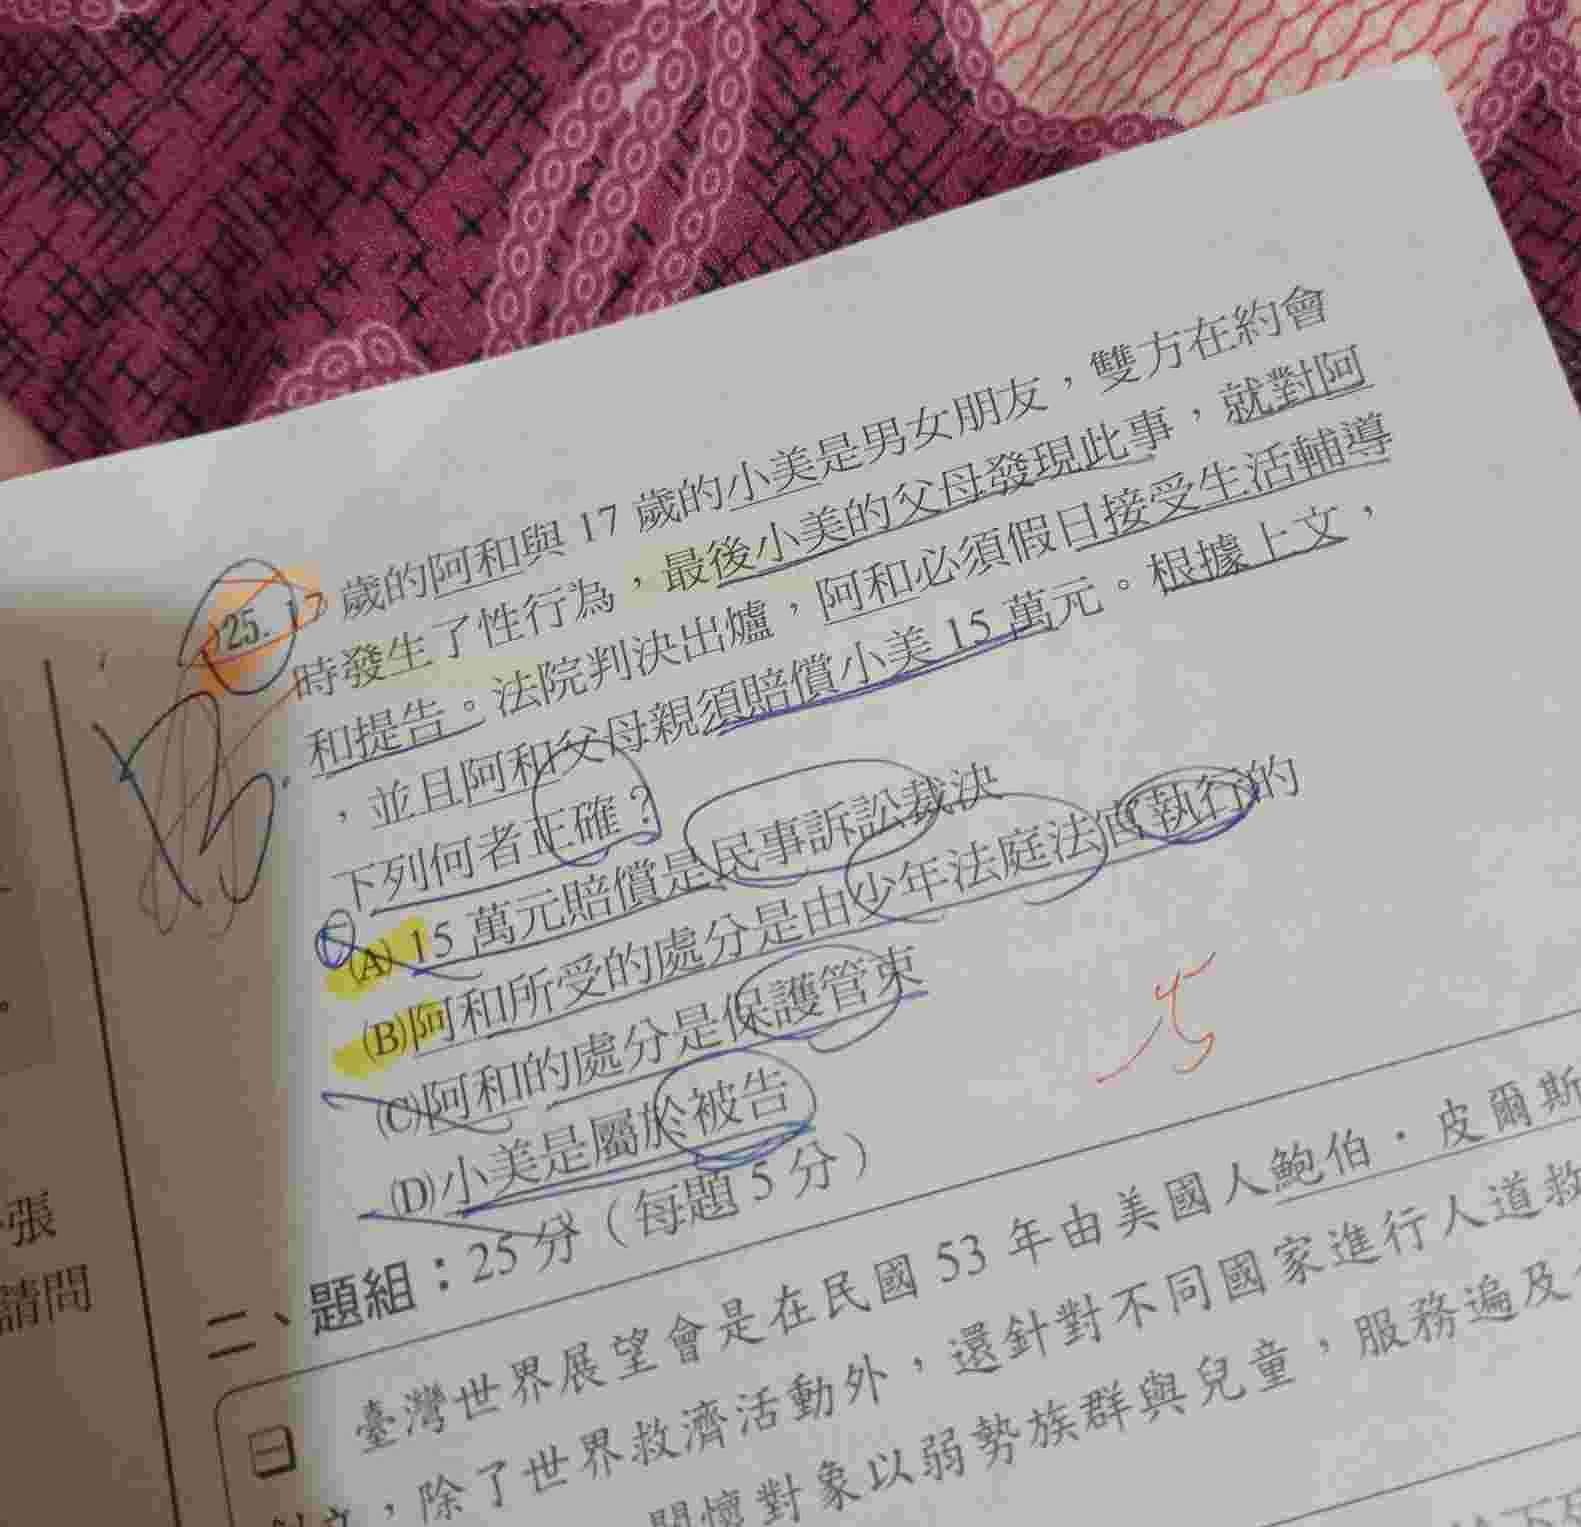 25. 17 歲的阿和與 17 歲的小美是男女朋友，雙方在約會
時發生了性行為，最後小美的父母發現此事，就對阿
和提告。法院判決出爐，阿和必須假日接受生活輔導
，並且阿和父母親須賠償小美 15 萬元。根據上文，
下列何者正確？
(A) 15 萬元賠償是民事訴訟裁決
(B)阿和所受的處分是由少年法庭法官執行的
(C)阿和的處分是保護管束
(D)小美是屬於被告
二、題組：25 分（每題 5 分）
臺灣世界展望會是在民國 53 年由美國人鮑伯．皮爾斯
，除了世界救濟活動外，還針對不同國家進行人道救
關懷對象以弱勢族群與兒童，服務遍及
張
請問